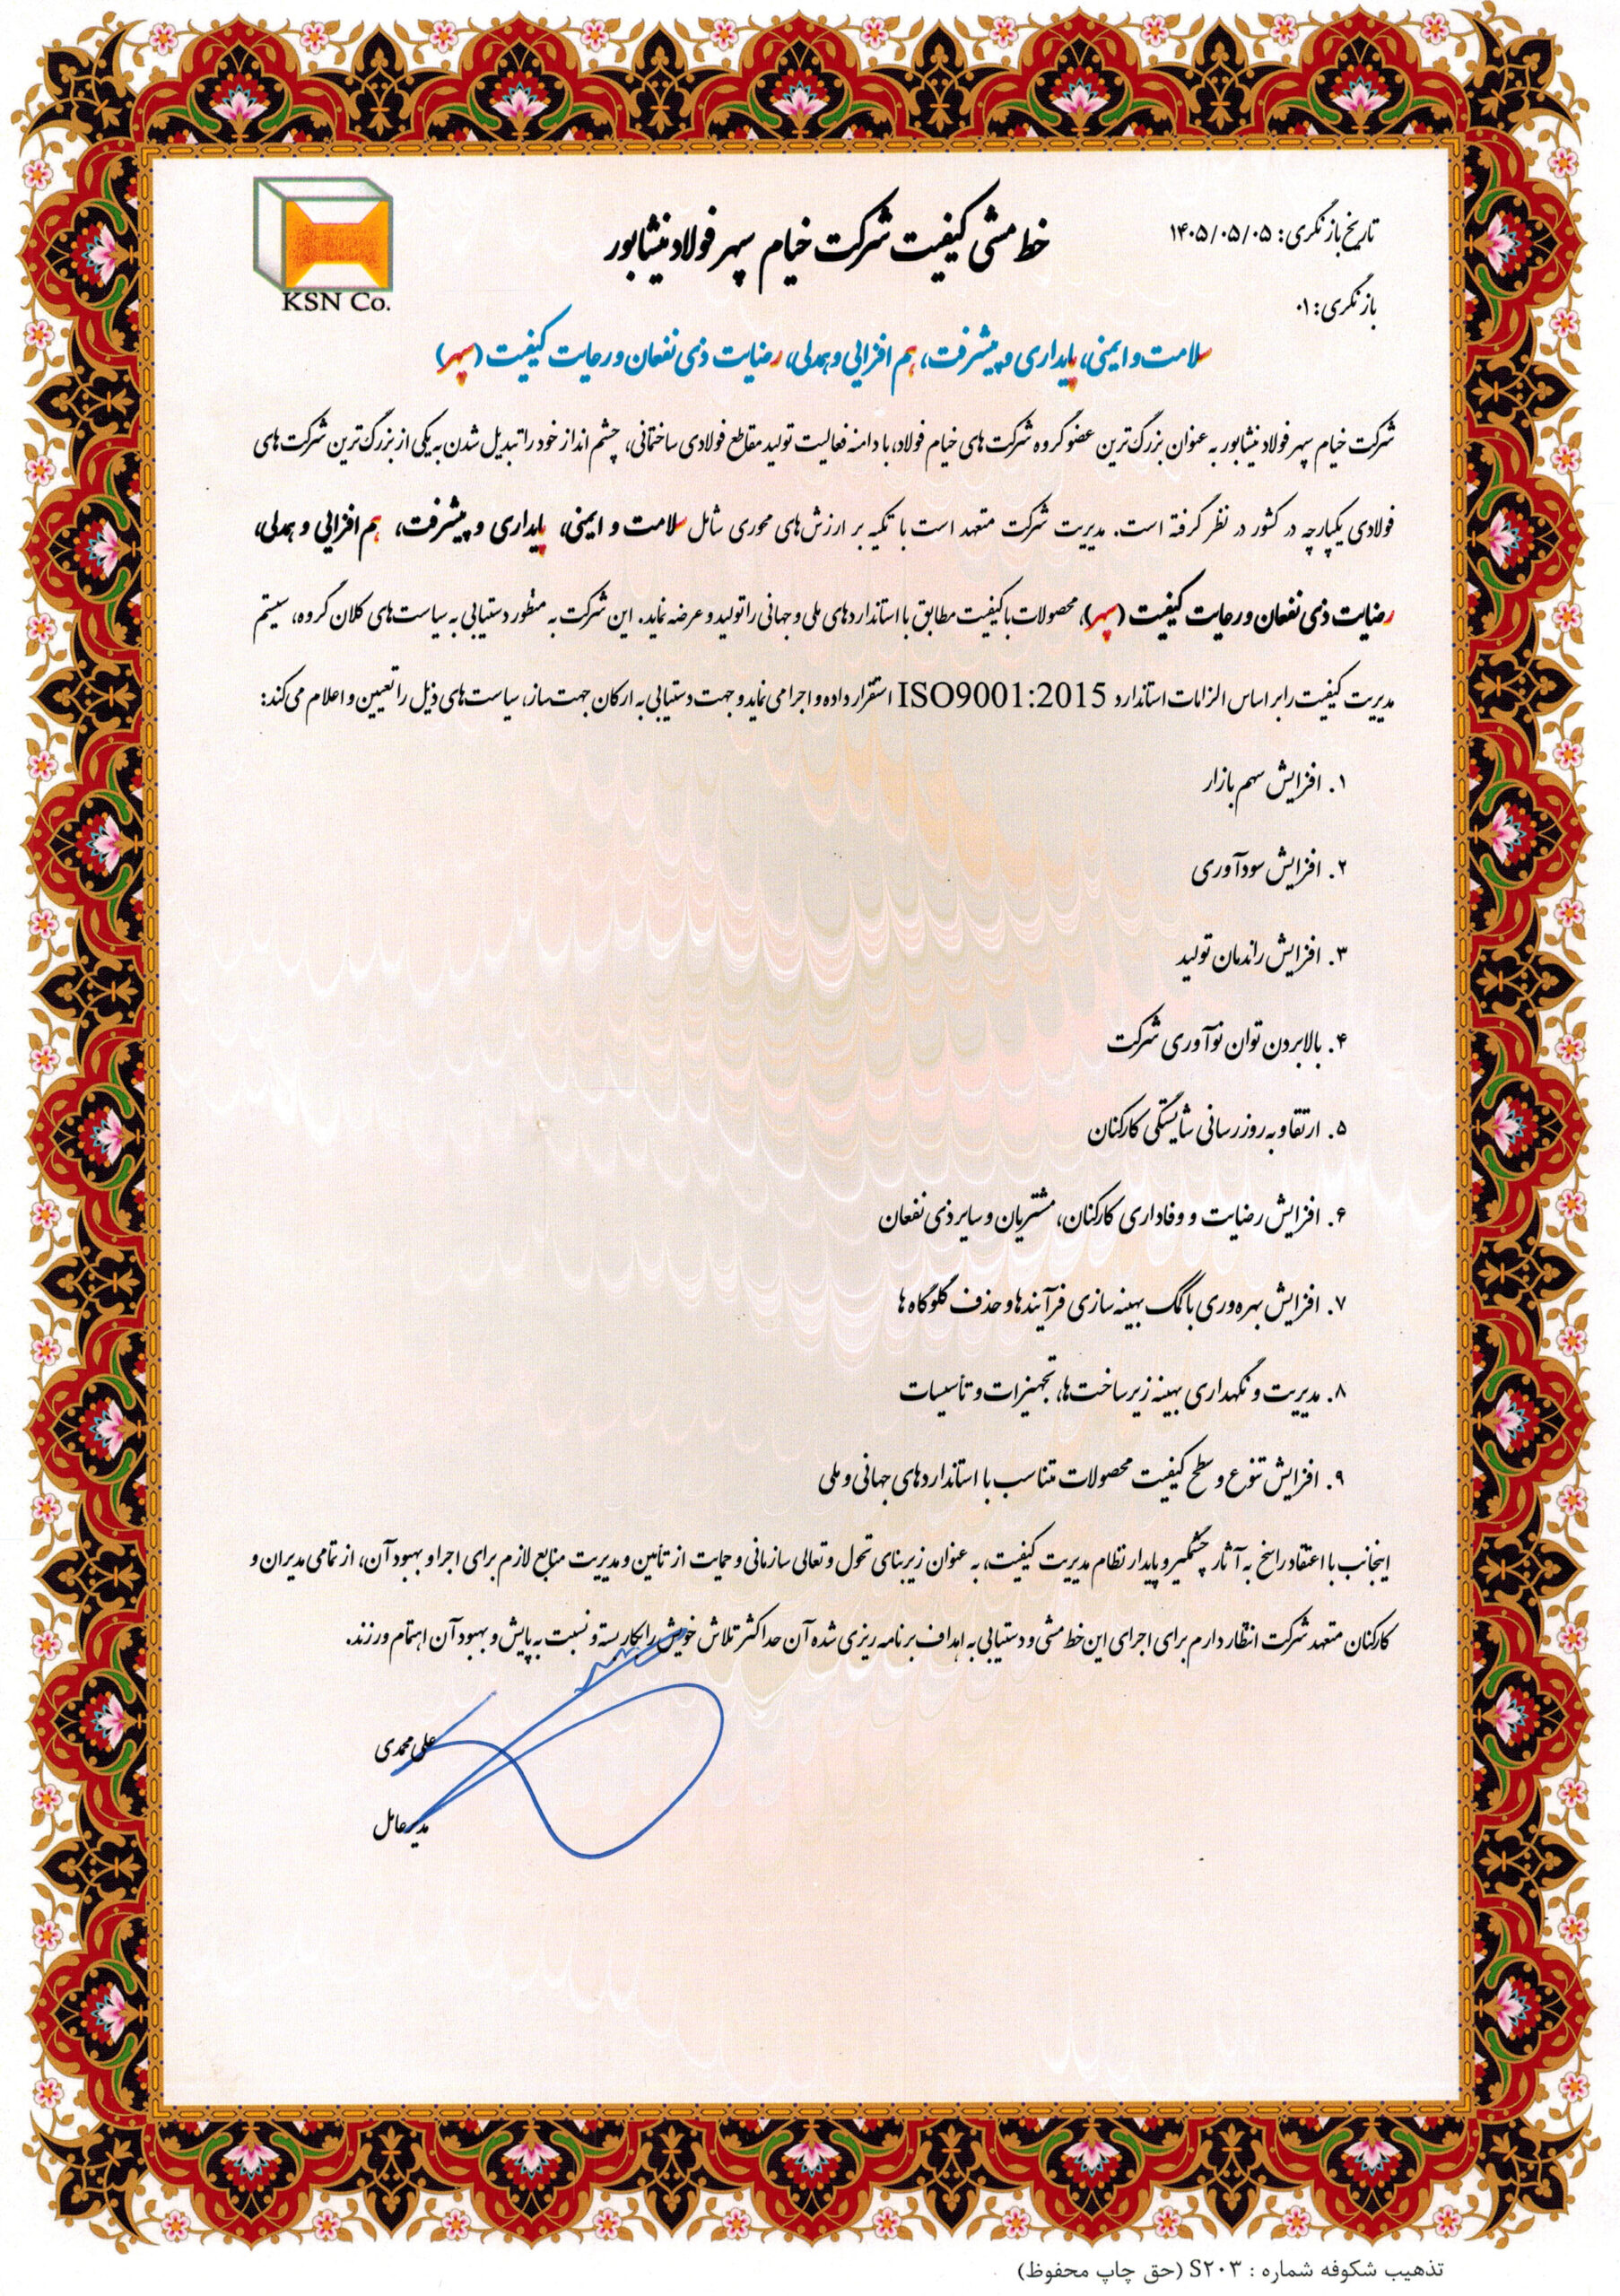 تاریخ بازنگری: ۱۴۰۵/۰۵/۰۵
خط مشی کیفیت شرکت خیام سپهر فولاد نیشابور
KSN Co.
بازنگری: ۰۱
سلامت و ایمنی، پایداری و پیشرفت، هم افزایی و همدلی، رضایت ذی نفعان و رعایت کیفیت (سپهر)
شرکت خیام سپهر فولاد نیشابور به عنوان بزرگ ترین عضو گروه شرکت های خیام فولاد، با دامنه فعالیت تولید مقاطع فولادی ساختمانی، چشم انداز خود را تبدیل شدن به یکی از بزرگ ترین شرکت های
فولادی یکپارچه در کشور در نظر گرفته است. مدیریت شرکت متعهد است با تکیه بر ارزش های محوری شامل سلامت و ایمنی، پایداری و پیشرفت، هم افزایی و همدلی،
رضایت ذی نفعان و رعایت کیفیت (سپهر)، محصولات با کیفیت مطابق با استانداردهای ملی و جهانی را تولید و عرضه نماید. این شرکت به منظور دستیابی به سیاست های کلان گروه، سیستم
مدیریت کیفیت را بر اساس الزامات استاندارد ISO9001:2015 استقرار داده و اجرا می نماید و جهت دستیابی به ارکان جهت ساز، سیاست های ذیل را تعیین و اعلام می کند:
۱. افزایش سهم بازار
۲. افزایش سودآوری
۳. افزایش راندمان تولید
۴. بالا بردن توان نوآوری شرکت
۵. ارتقا و به روز رسانی شایستگی کارکنان
۶. افزایش رضایت و وفاداری کارکنان، مشتریان و سایر ذی نفعان
۷. افزایش بهره وری با کمک بهینه سازی فرآیندها و حذف گلوگاه ها
۸. مدیریت و نگهداری بهینه زیرساخت ها، تجهیزات و تأسیسات
۹. افزایش تنوع و سطح کیفیت محصولات متناسب با استانداردهای جهانی و ملی
اینجانب با اعتقاد راسخ به آثار چشمگیر و پایدار نظام مدیریت کیفیت، به عنوان زیربنای تحول و تعالی سازمانی و حمایت از تأمین و مدیریت منابع لازم برای اجرا و بهبود آن، از تمامی مدیران و
کارکنان متعهد شرکت انتظار دارم برای اجرای این خط مشی و دستیابی به اهداف برنامه ریزی شده آن حداکثر تلاش خویش را بکار بسته و نسبت به پایش و بهبود آن اهتمام ورزند.
علی محمدی
مدیرعامل
تذهیب شکوفه شماره : S۲۰۳ (حق چاپ محفوظ)